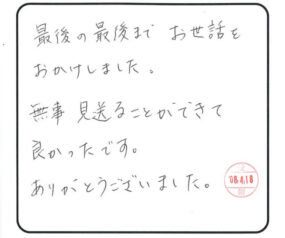 最後の最後まで お世話を
おかけしました。
無事 見送ることができて
良かったです。
ありがとうございました。
'08.4.18